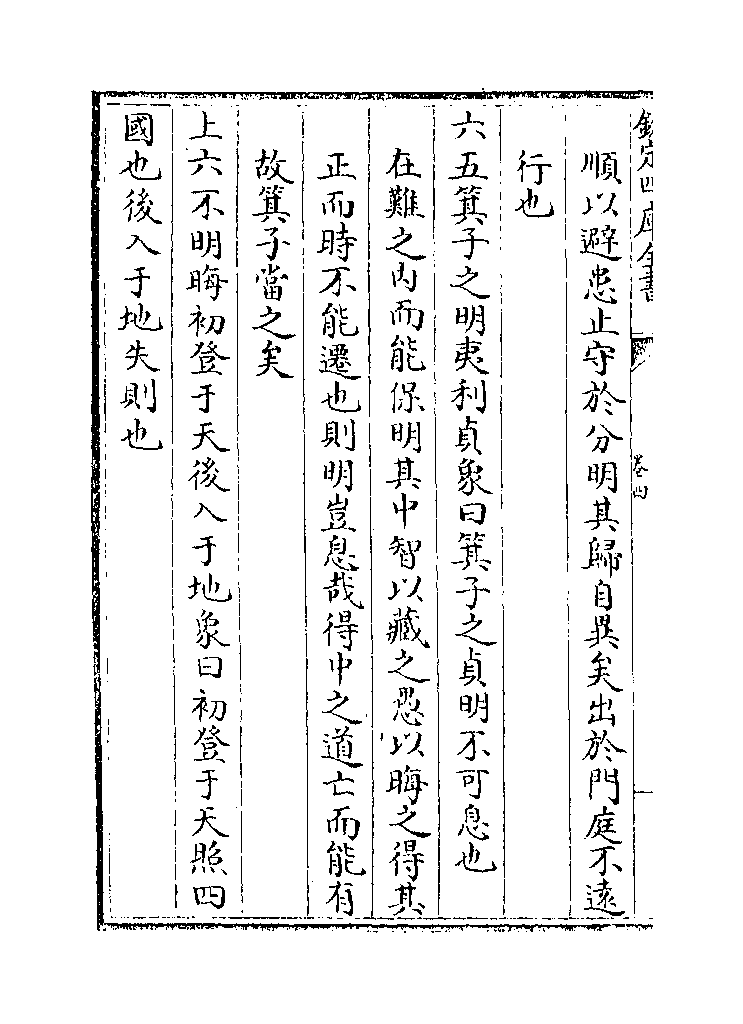 欽定四庫全書
卷四
順以避患止守於分明其歸自異矣出於門庭不遠
行也
六五箕子之明夷利貞象曰箕子之貞明不可息也
在難之内而能保明其中智以藏之愚以晦之得其
正而時不能遷也則明豈息哉得中之道亡而能有
故箕子當之矣
上六不明晦初登于天後入于地象曰初登于天照四
國也後入于地失則也